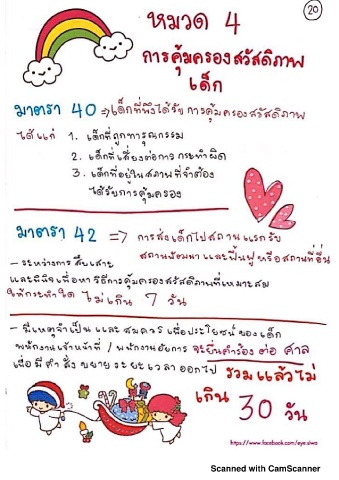 20
หมวด 4
การคุ้มครองสวัสดิภาพ
เด็ก
มาตรา 40 => เด็กที่พึงได้รับ การคุ้มครองสวัสดิภาพ
ได้แก่ 1. เด็กที่ถูกทารุณกรรม
2. เด็กที่เสี่ยงต่อการกระทำผิด
3. เด็กที่อยู่ในสภาพที่จำต้อง
ได้รับการคุ้มครอง
มาตรา 42 => การส่งเด็กไปสถานแรกรับ
สถานพัฒนา และฟื้นฟู หรือสถานที่อื่น
- ระหว่างการ สืบเสาะ
และพินิจเพื่อหา วิธีการคุ้มครองสวัสดิภาพที่เหมาะสม
ให้กระทำได้ ไม่เกิน 7 วัน
- มีเหตุจำเป็น และ สมควร เพื่อประโยชน์ ของเด็ก
พนักงานเจ้าหน้าที่ / พนักงานอัยการ จะยื่นคำร้อง ต่อ ศาล
เพื่อ มี คำ สั่ง ขยาย ระยะ เวลา ออกไป รวม แล้ว ไม่
เกิน
30 วัน
https://www.facebook.com/eye.siwa
Scanned with CamScanner